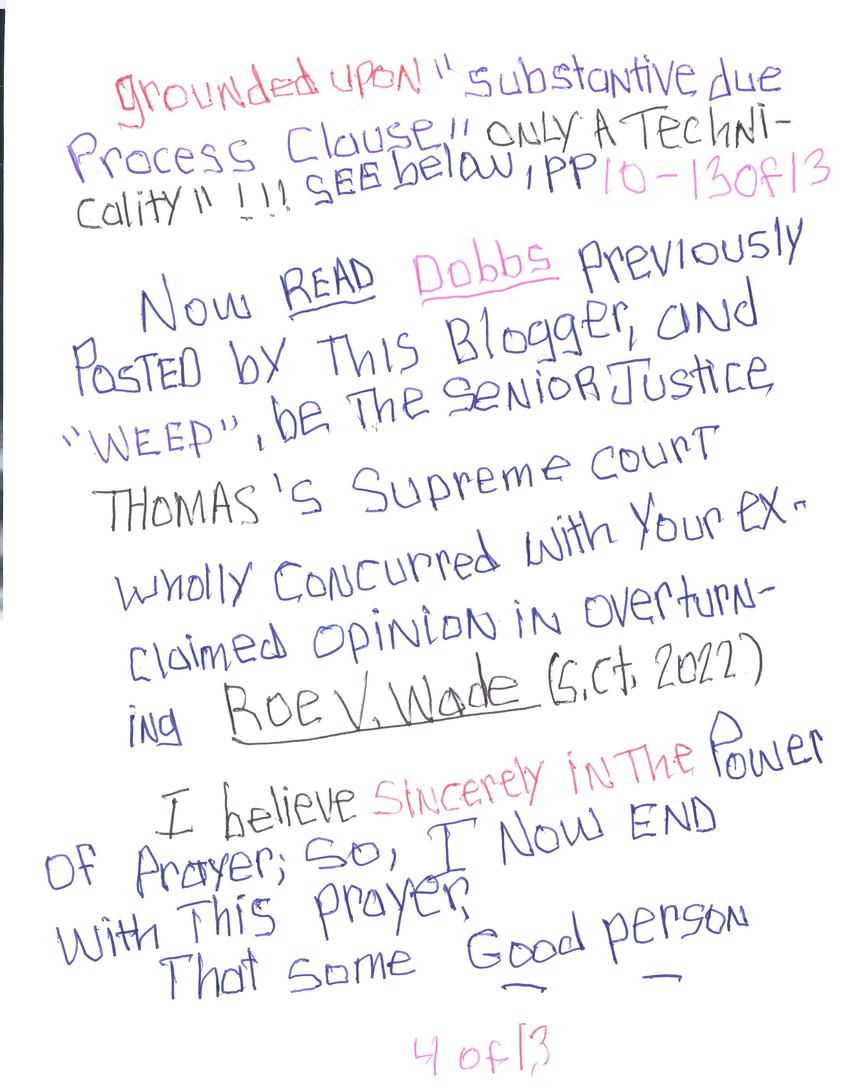 grounded upon "substantive due
Process Clause" ONLY A Techni-
cality" !!! SEE below, PP 10-13 of 13
Now READ Dobbs previously
PosTED by This Blogger, and
"WEEP", be The SENIOR Justice
THOMAS's Supreme court
wholly concurred with Your ex-
claimed opinion in overturn-
ing Roe V. Wade (S.Ct. 2022)
I believe Sincerely in The Power
Of Prayer; So, I Now END
With This prayer,
That some Good person
4 of 13